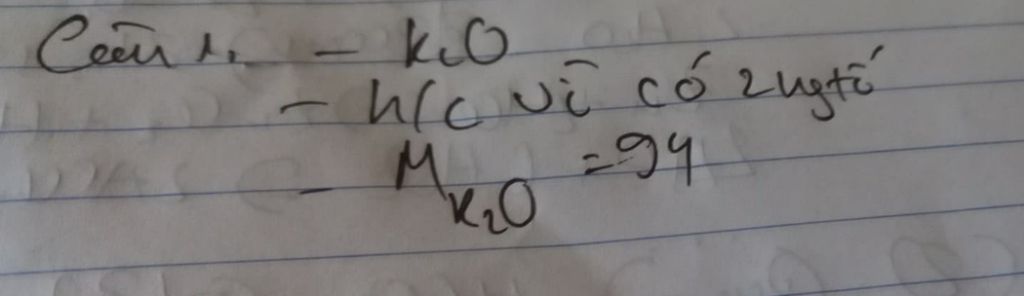 Câu 1. - K₂O
- h/c vì có 2 ngtố
- M K₂O = 94